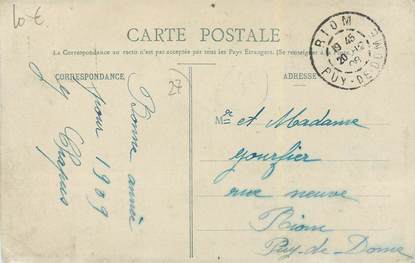 10 €
CARTE POSTALE
La Correspondance au recto n'est pas acceptée par tous les Pays Etrangers. (Se renseigner à
CORRESPONDANCE
ADRESSE
RIOM
PUY-DE-DOME
27
Bonne année
pour 1909
Mr et Madame
Gourfier
rue neuve
Riom
Puy-de-Dome